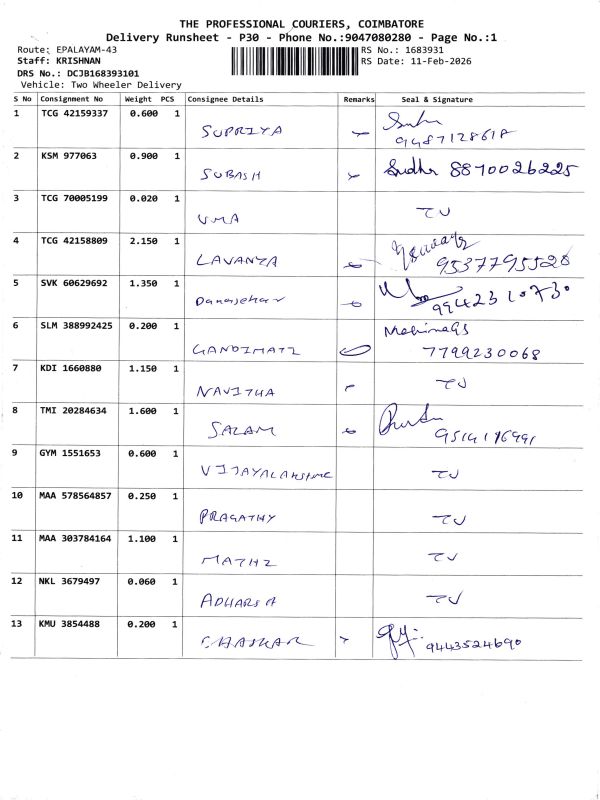 THE PROFESSIONAL COURIERS, COIMBATORE
Delivery Runsheet - P30 - Phone No.:9047080280 - Page No.:1
Route: EPALAYAM-43 RS No.: 1683931
Staff: KRISHNAN RS Date: 11-Feb-2026
DRS No.: DCJB168393101
Vehicle: Two Wheeler Delivery
S No Consignment No Weight PCS Consignee Details Remarks Seal & Signature
1 TCG 42159337 0.600 1
SUPRIYA
2 KSM 977063 0.900 1 Sudha 8870026225
SUBASH
3 TCG 70005199 0.020 1
UMA TU
4 TCG 42158809 2.150 1
LAVANYA 9537795520
5 SVK 60629692 1.350 1
Danasekar 9942310730
6 SLM 388992425 0.200 1
GANDIMATI 7799230068
7 KDI 1660880 1.150 1 TU
NAVITHA
8 TMI 20284634 1.600 1
SALAM
9 GYM 1551653 0.600 1
TU
10 MAA 578564857 0.250 1
PRAGATHY TU
11 MAA 303784164 1.100 1
MATHI TU
12 NKL 3679497 0.060 1
TU
13 KMU 3854488 0.200 1
9443524690